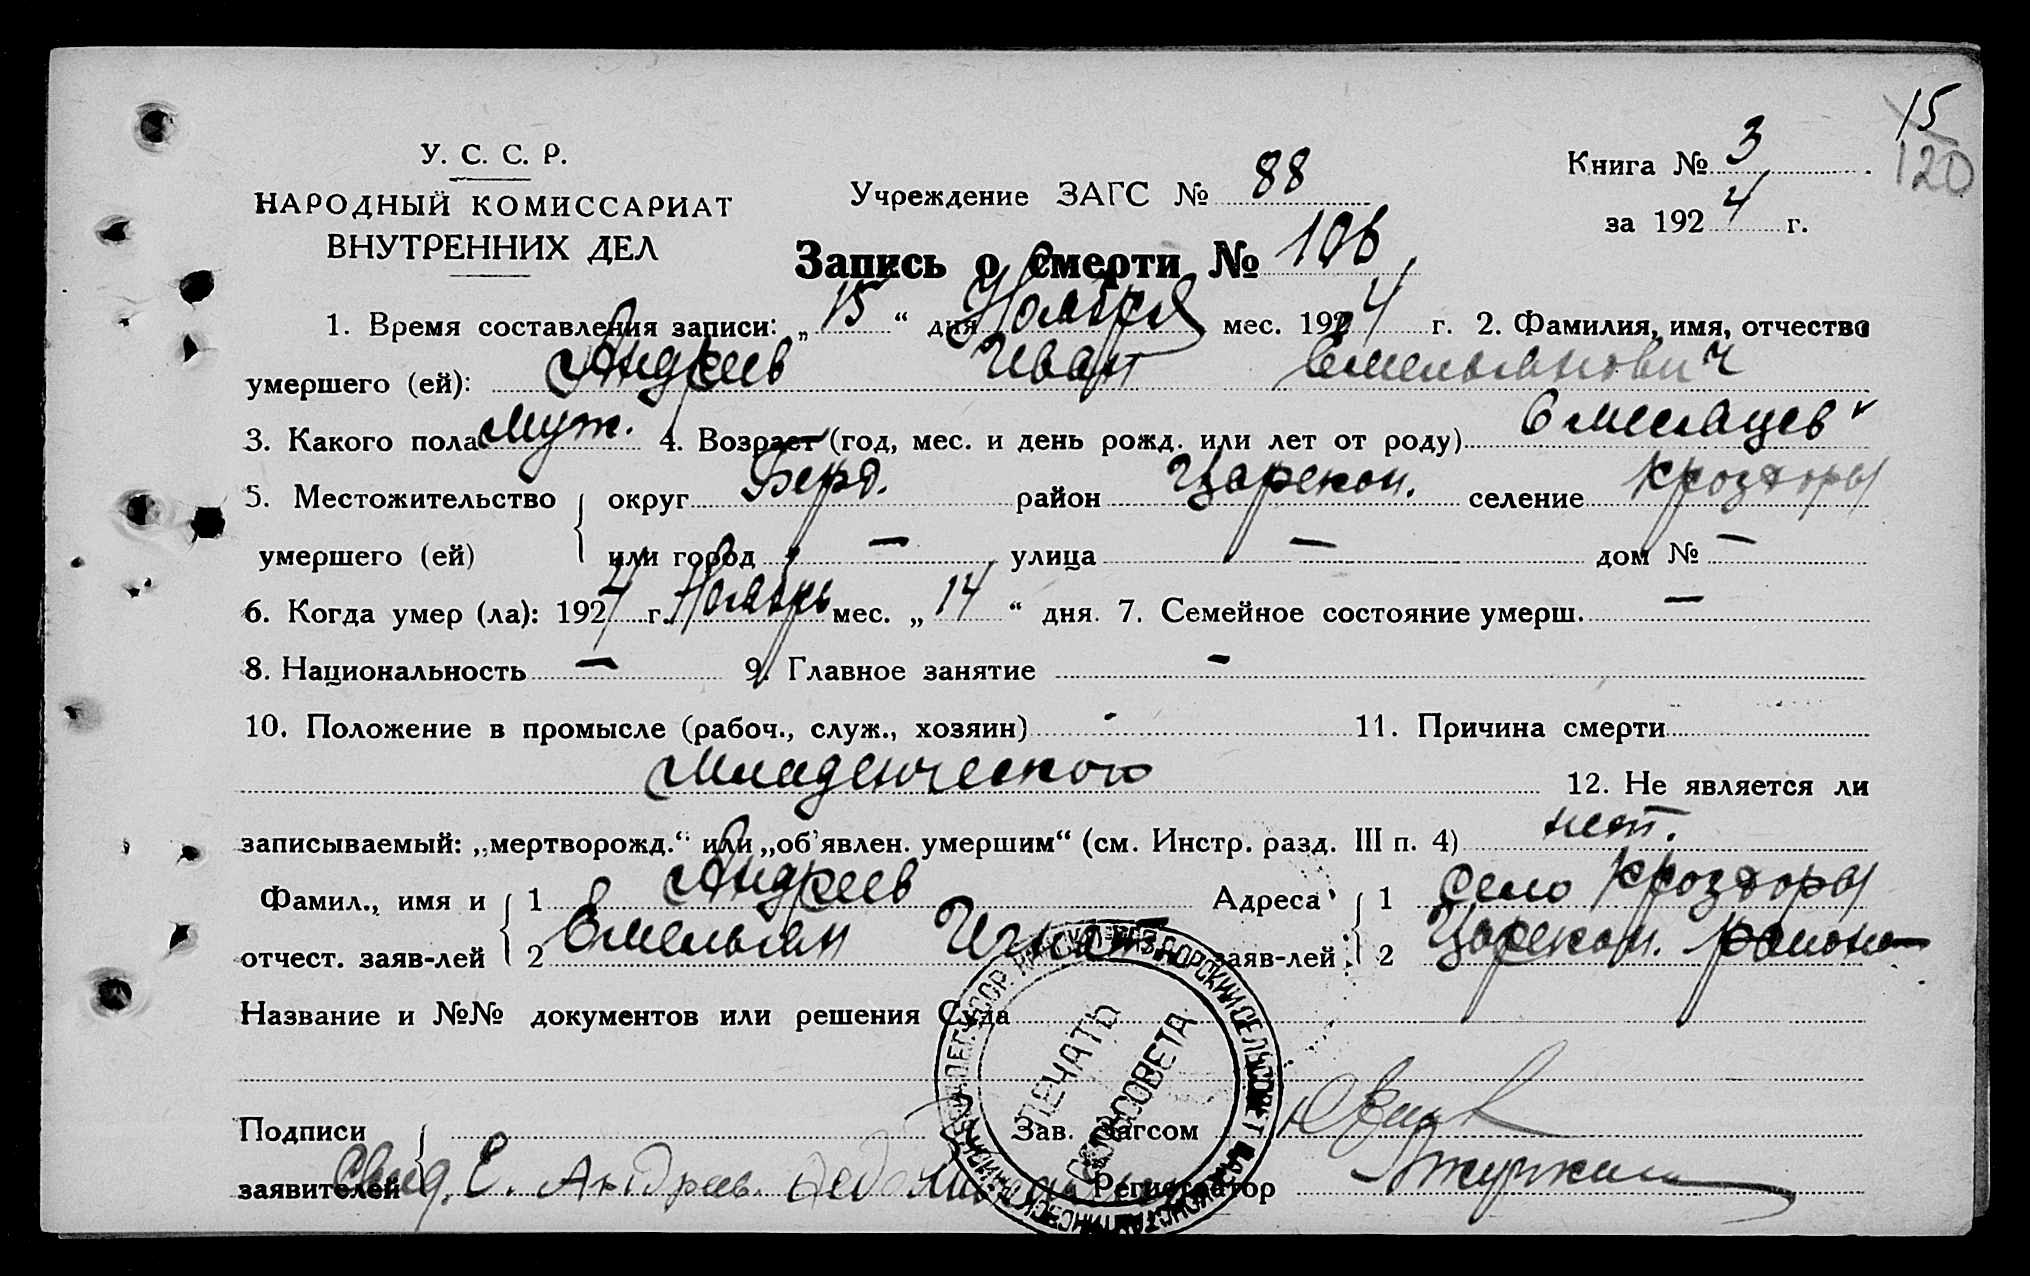 15
120
У. С. С. Р.
НАРОДНЫЙ КОМИССАРИАТ
ВНУТРЕННИХ ДЕЛ
Учреждение ЗАГС № 88
Книга № 3
за 1924 г.
Запись о смерти № 106
1. Время составления записи: „15“ дня Ноября мес. 1924 г. 2. Фамилия, имя, отчество
умершего (ей): Андреев Иван Емельянович
3. Какого пола муж. 4. Возраст (год, мес. и день рожд. или лет от роду) 6 месяцев
5. Местожительство округ Берд. район Царекон. селение
умершего (ей) или город — улица — дом № —
6. Когда умер (ла): 1924 г. Ноябрь мес. „14“ дня. 7. Семейное состояние умерш. —
8. Национальность — 9. Главное занятие -
10. Положение в промысле (рабоч., служ., хозяин) - 11. Причина смерти
Младенческого 12. Не является ли
записываемый: „мертворожд.“ или „об'явлен. умершим“ (см. Инстр. разд. III п. 4) нет.
Фамил., имя и 1 Андреев Адреса 1 село
отчест. заяв-лей 2 Емельян заяв-лей 2 Царекон. района
Название и №№ документов или решения Суда
ПЕЧАТЬ
СЕЛЬСОВЕТА
Подписи Зав. Загсом
заявителей Е. Андреев Регистратор